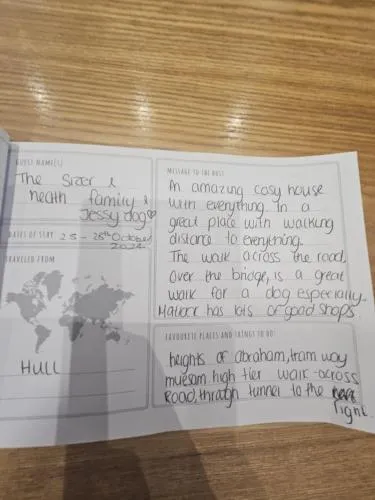 GUEST NAME(S)
The Sizer &
neath family &
Jessy dog
DATES OF STAY 25 - 28th October
2024
TRAVELED FROM
HULL
MESSAGE TO THE HOST
An amazing cosy house
with everything. In a
great place with walking
distance to everything.
The walk across the road,
over the bridge, is a great
walk for a dog especially.
Matlock has lots of good shops.
FAVOURITE PLACES AND THINGS TO DO:
heights of abraham, tram way
muesam, high tier walk - across
road, through tunnel to the
right.